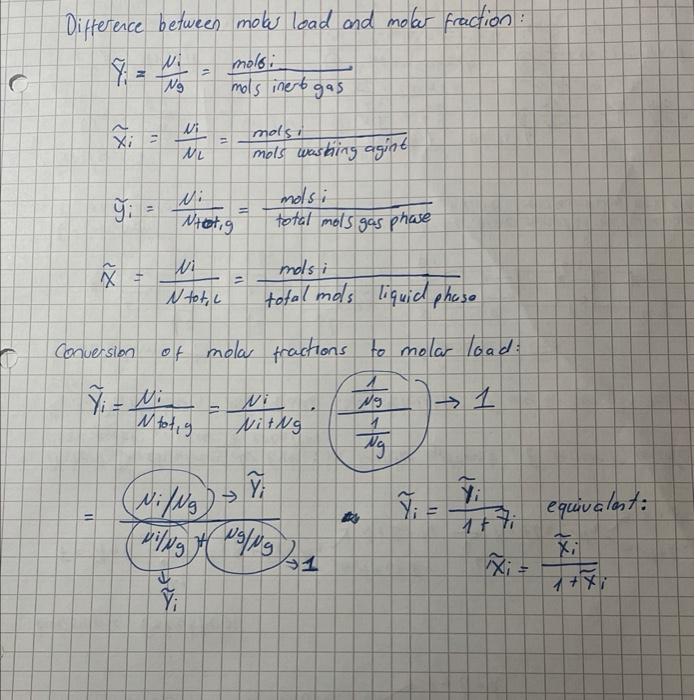 Difference between molar load and molar fraction:
Ỹi = Ni/Ng = mols i / mols inert gas
X̃i = Ni/NL = mols i / mols washing agint
ỹi = Ni/Ntot,g = mols i / total mols gas phase
x̃ = Ni/Ntot,L = mols i / total mols liquid phase
Conversion of molar fractions to molar load:
ỹi = Ni/Ntot,g = Ni/(Ni+Ng) · (1/Ng)/(1/Ng) → 1
= (Ni/Ng → Ỹi) / (Ni/Ng + Ng/Ng → 1)
↓
Ỹi
ỹi = Ỹi/(1+Ỹi) equivalent:
x̃i = X̃i/(1+X̃i)